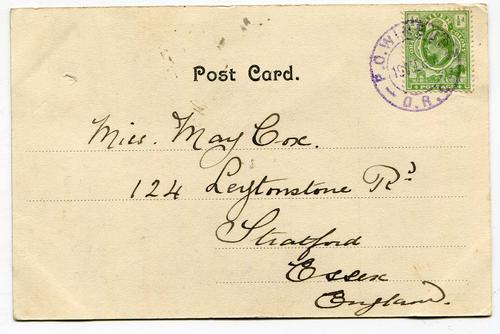 Post Card.
Miss. May Cox.
124 Leytonstone Rd
Stratford
Essex
England.
½d
POSTAGE